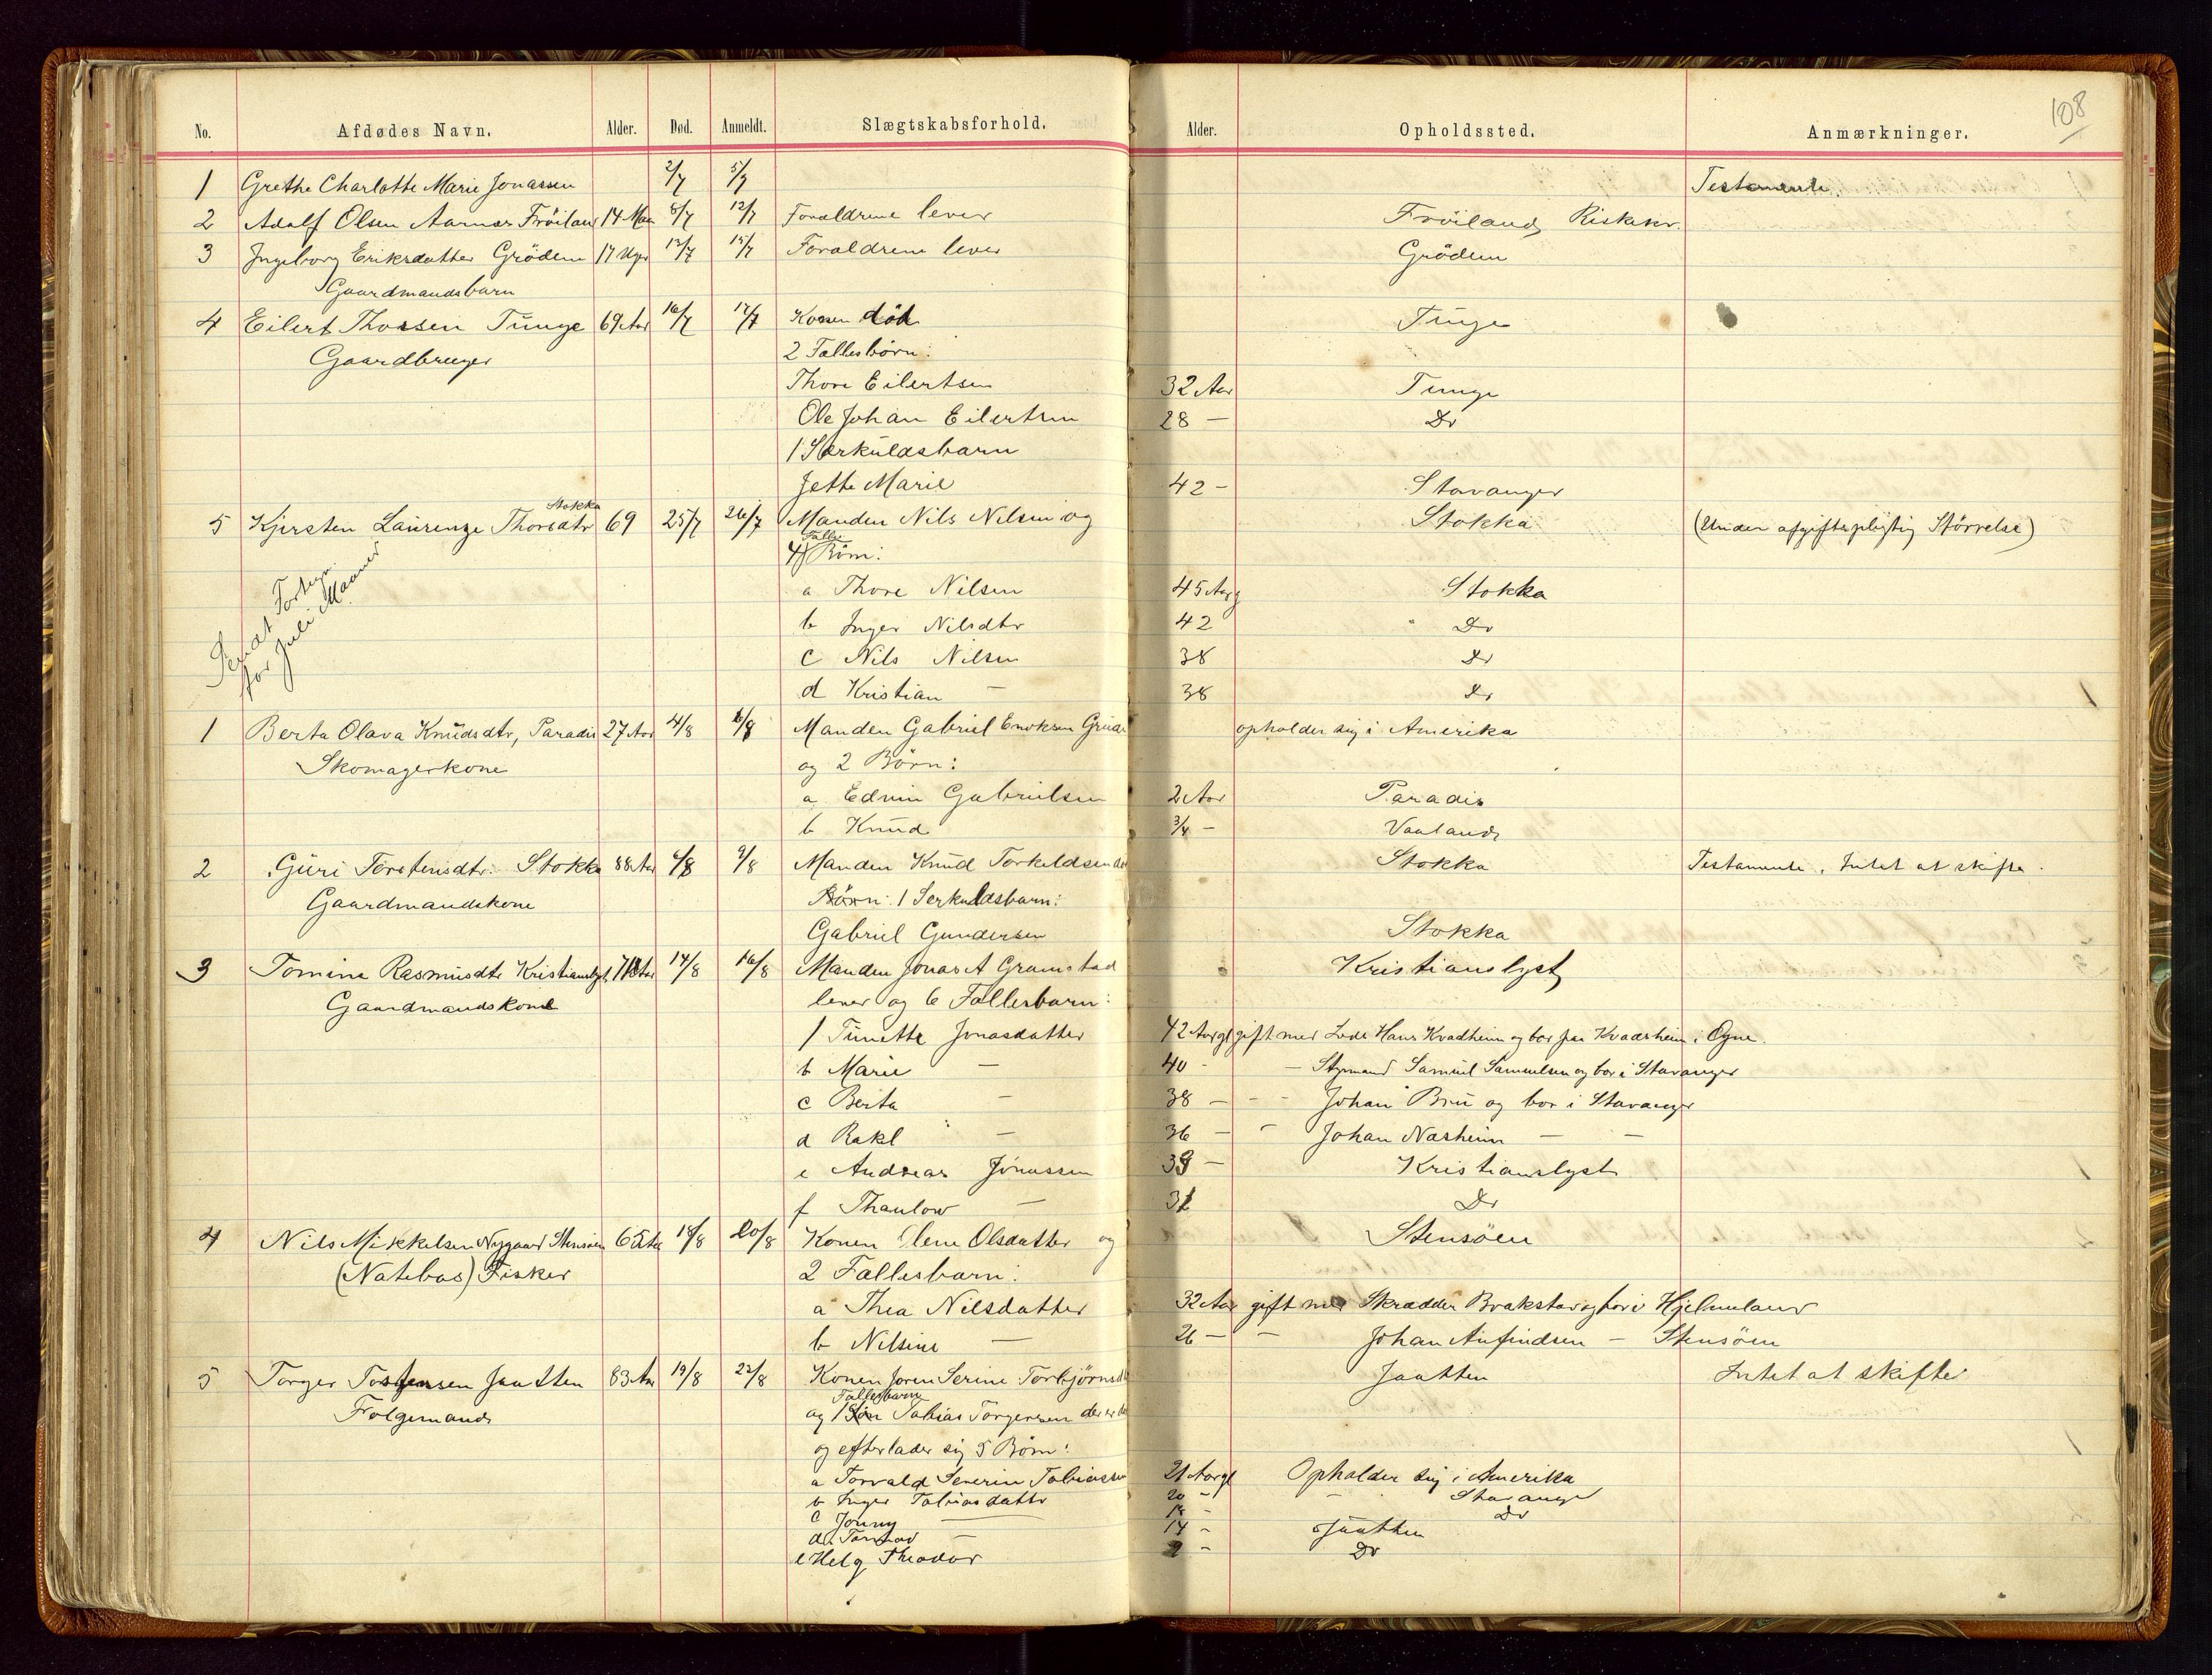 108
No. Afdødes Navn. Alder. Død. Anmeldt. Slægtskabsforhold. Alder. Opholdssted. Anmærkninger.
1 Grethe Charlotte Marie Jonassen 2/7 5/7 Testamente.
2 Adolf Olsen Aamar Fröiland 14 Maa 8/7 12/7 Forældrene lever Fröiland Riskekv.
3 Ingeborg Eriksdatter Grödem 17 Uger 13/7 15/7 Forældrene lever Grödem
Gaardmandsbarn
4 Eilert Thorsen Tunge 69 Aar 16/7 17/7 Konen död Tunge
Gaardbruger 2 Fællesbörn:
Thore Eilertsen 32 Aar Tunge
Ole Johan Eilertsen 28 — Do
1 Særkuldsbarn
Jette Marie 42 - Stavanger
Stokka
5 Kjersten Laurenze Thoresdtr 69 25/7 26/7 Manden Nils Nilsen og Stokka (Under afgiftspligtig Störrelse)
Fælles
4 Börn:
Sendt Fortegn.
for Juli Maaned
a Thore Nilsen 45 Aar g Stokka
b Inger Nilsdtr 42 " Do
c Nils Nilsen 38 Do
d Kristian — 38 Do
1 Berta Olava Knudsdtr, Paradis 27 Aar 4/8 6/8 Manden Gabriel Enoksen Grude opholder sig i Amerika
Skomagerkone og 2 Börn:
a Edvin Gabrielsen 2 Aar Paradis
b Knud 3/4 - Vaaland
2 Guri Torstensdtr. Stokka 88 Aar 6/8 9/8 Manden Knud Torkeldsen Stokka Testamente. Intet at skifte.
Gaardmandskone Börn: 1 Serkuldsbarn:
Gabriel Gundersen Stokka
3 Tomine Rasmusdtr Kristianslyst 14/8 16/8 Manden Jonas A Gramstad Kristianslyst
Gaardmandskone lever og 6 Fællesbarn:
1 Tunette Jonasdatter 42 Aar gl gift med Hans Kvadheim og bor paa Kvadsheim i Ogne.
b Marie — 40 - — Styrmand Samuel Samuelsen og bor i Stavanger
c Berta — 38 — - - Johan Bru og bor i Stavanger
d Rakl — 36 — " Johan Næsheim — —
e Andreas Jonassen 33 — Kristianslyst
f Thaulow — 31 Do
4 Nils Mikkelsen Nygaard Stensöen 65 Aar 18/8 20/8 Konen Olene Olsdatter og Stensöen
(Natebas) Fisker 2 Fællesbarn:
a Thea Nilsdatter 32 Aar gift med Skrædder Brakstav og bor i Hjelmeland
b Nilsine — 26 — — Johan Anfindsen — Stensöen
5 Torger Jaatten 83 Aar 19/8 22/8 Konen Joren Serine Torbjörnsd Jaatten Intet at skifte
Fællesbarn
Folgemand og 1 Sön Tobias Torgersen der er
og efterlader sig 5 Börn:
a Torvald Severin Tobiassen 21 Aar gl Opholder sig i Amerika
b Inger Tobiasdattr 20 - — Stavanger
c Jonny — 18 - Do
d — 14 - Jaatten
e Helg Theodor - Do